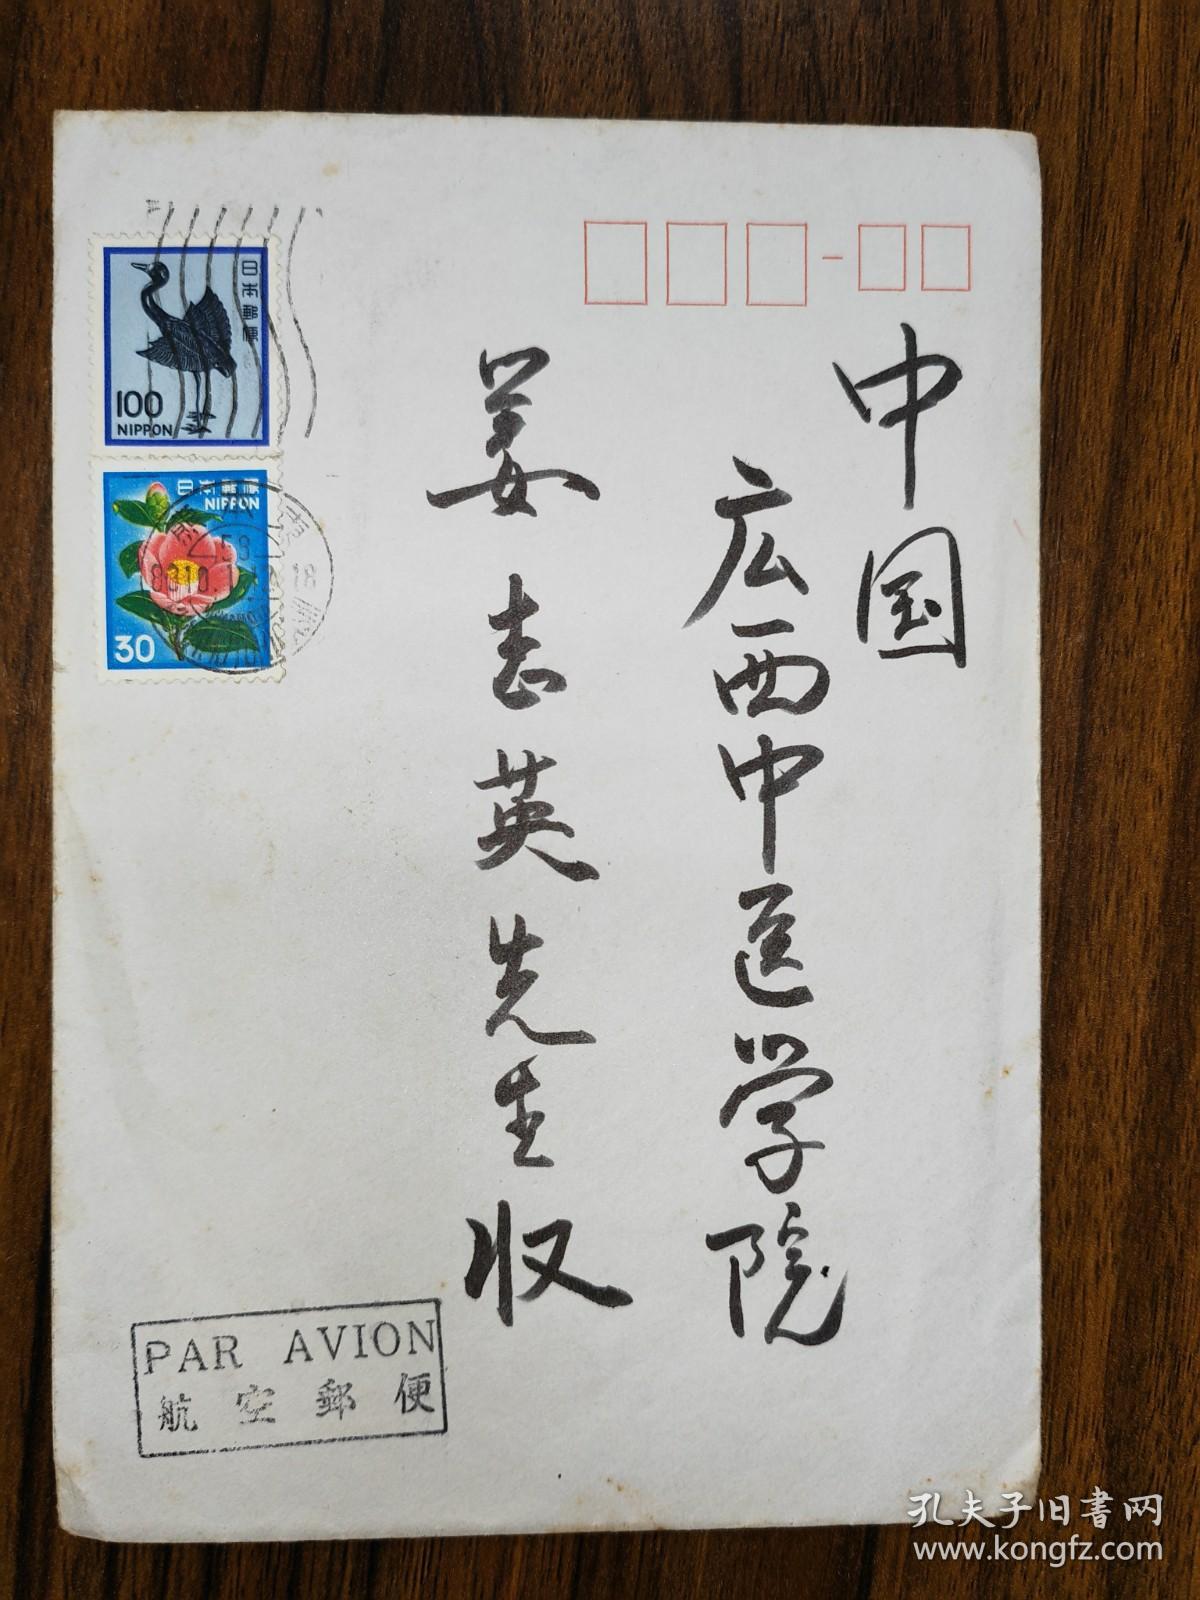 中国
広西中医学院
姜志英先生收
日本郵便
100
NIPPON
日本郵便
NIPPON
30
58
PAR AVION
航空郵便
孔夫子旧書网
www.kongfz.com